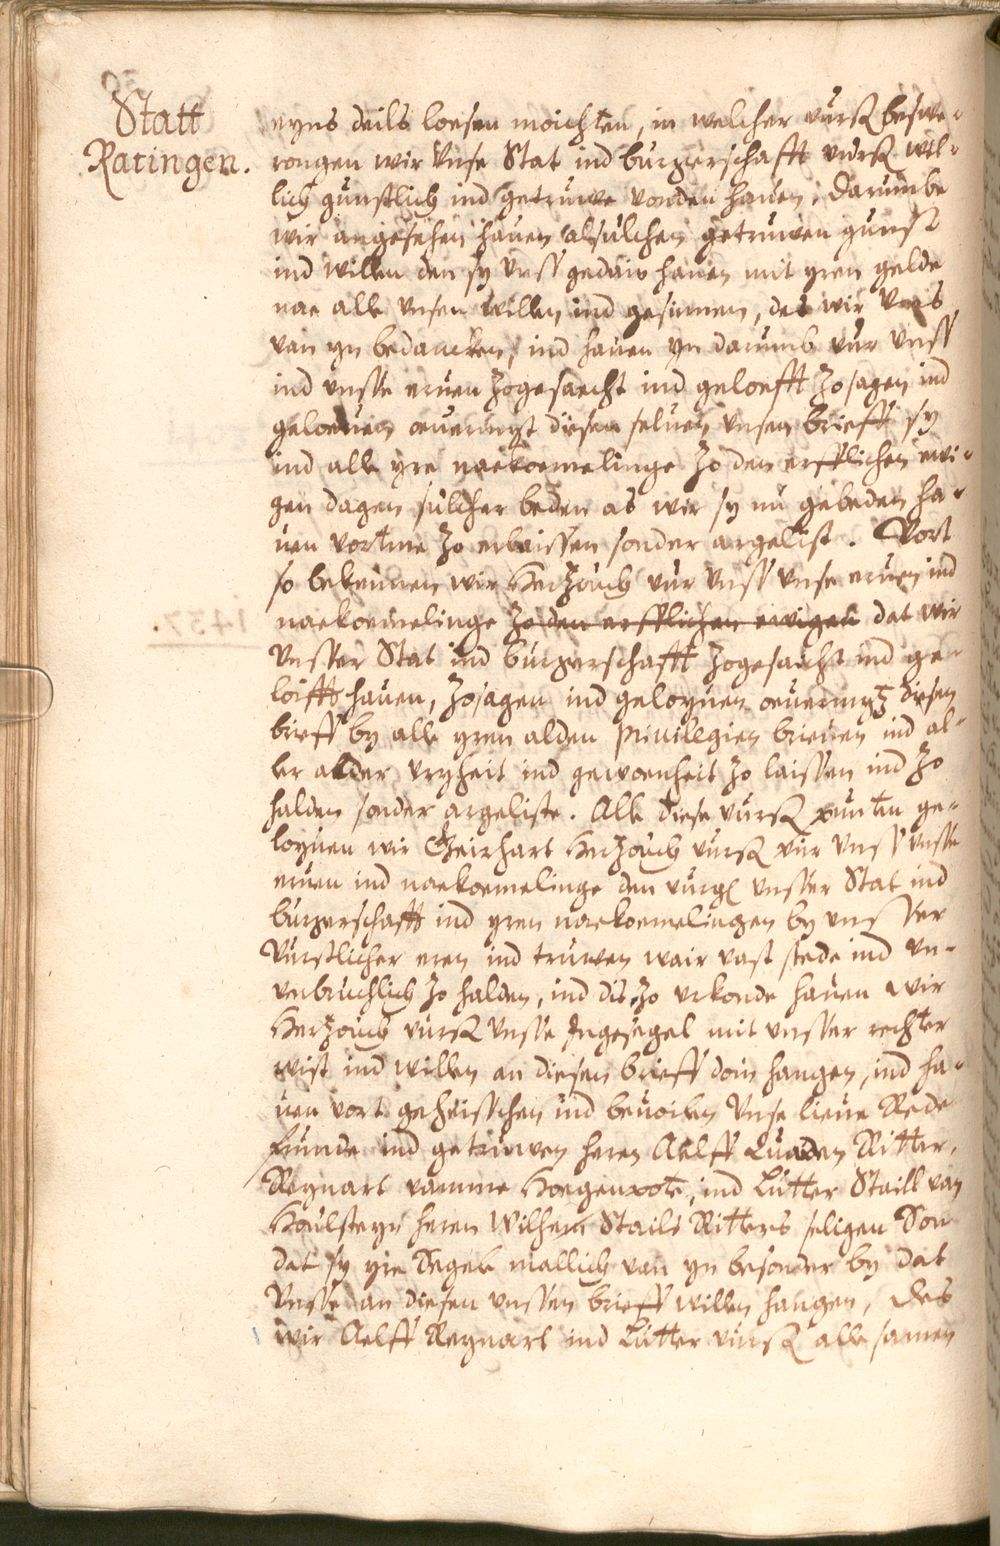 Statt
Ratingen.
eyns deils loesen moichten, in welcher vursz beswe-
rongen wir Vnse Stat ind burgerschafft vursz wil-
lich gunstlich ind getruwe vonden hauen, Darumbe
wir angesehen hauen alsulchen getruwen gunst
ind willen den sy Vnss gedain hauen mit yren gelde
nae alle vnsen willen ind gesinnen, des wir Vns
van yn bedancken, ind hauen yn darumb vur vnss
ind vnsse eruen zogesaecht ind geloefft zosagen ind
gelouen ouermyt diesen seluen vnsen brieff sy
ind alle yre naekoemelinge zo den erfflichen ewi-
gen dagen sulcher beden as wir sy nu gebeden ha-
uen vortme zo erlaissen sonder argelist. Vort
so bekennen wir Hertzouch vur Vnss Vnse eruen ind
naekoemelinge zo den erfflichen ewigen dat wir
Vnsser Stat ind burgerschafft zogesaicht ind ge-
loifft hauen, zosagen ind geloyuen ouermytz diesen
brieff by alle yren alden priuilegien brieuen ind al-
ler alder vryheit ind gewoenheit zo laissen ind zo
halden sonder argeliste. Alle diese vursz punten ge-
loyuen wir Gheirhart Hertzouch vursz vur Vnss Vnsse
eruen ind naekoemelinge den vurg vnsser Stat ind
burgerschafft ind yren naekoemelingen by vnsser
Vurstlicher eren ind truwen wair vast stede ind vn-
verbruchlich zo halden, ind dis zo vrkonde hauen wir
Hertzouch vursz Vnsse Ingesegel mit vnsser rechter
wist ind willen an diesen brieff doin hangen, ind ha-
uen vort geheisschen ind beuolen Vnse lieue Rede
frunde ind getruwen heren Aelff Quaden Ritter,
Reynart vamme Hoegenrote, ind Lutter Staill van
Houlsteyn heren Wilhem Stails Ritters seligen Son
dat sy yre Segele mallich van yn besonder by dat
Vnsse an diesen vnssen brieff willen hangen, Des
wir Aelff Reynart ind Lutter vursz alle samen